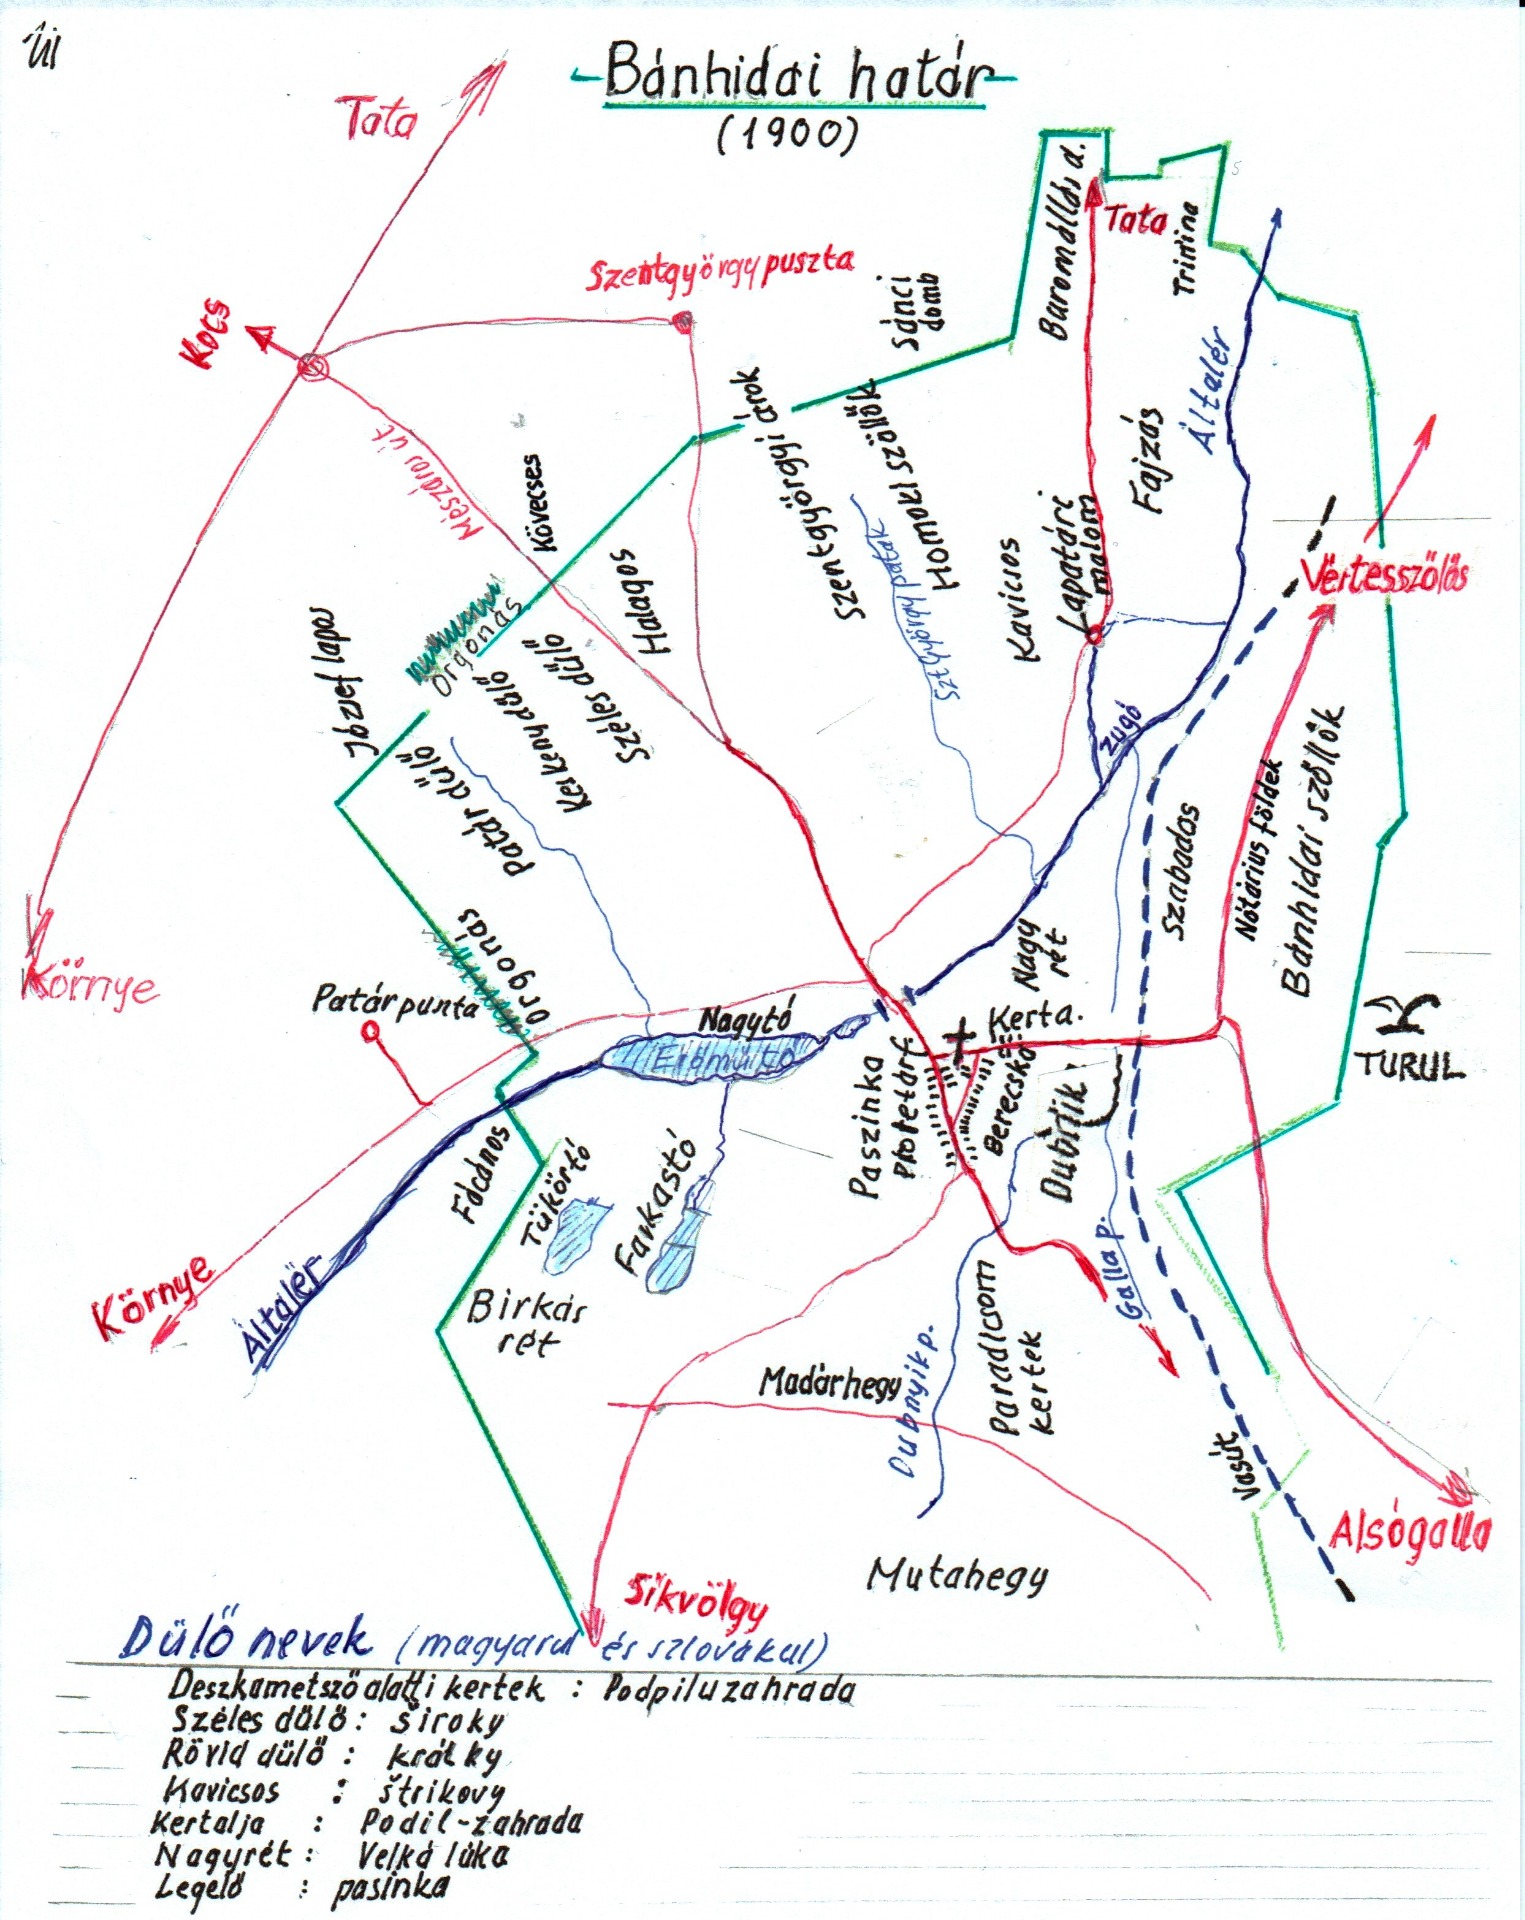 Bánhidai határ
(1900)
Tata
Kocs
Szentgyörgypuszta
Sánci
domb
Baromállás d.
Tata
Trimina
Mészáros út
Kövecses
Halagos
Szentgyörgyi árok
Homoki szőllők
Sztgyörgy patak
Kavicsos
Lapatári
malom
Fajzás
Általér
Vértesszőlős
József lapos
Orgonás
Széles dűlő
Keskeny dűlő
Patár dűlő
Zúgó
Szabados
Nótárius földek
Bánhidai szőllők
Környe
Orgonás
Patárpuszta
Nagytó
Erőműtó
Nagy
rét
Kerta.
Berecska
Paszinka
Dubnik
TURUL
Fácános
Tükörtó
Farkastó
Környe
Általér
Birkás
rét
Galla p.
Paradicsom
kertek
Madárhegy
Dubnyik p.
Vasút
Alsógalla
Mutahegy
Síkvölgy
Dűlő nevek (magyarul és szlovákul)
Deszkametsző alatti kertek : Podpiluzahrada
Széles dűlő : široky
Rövid dűlő : krátky
Kavicsos : štrikovy
Kertalja : Podil-zahrada
Nagyrét : Velká lúka
Legelő : pasinka